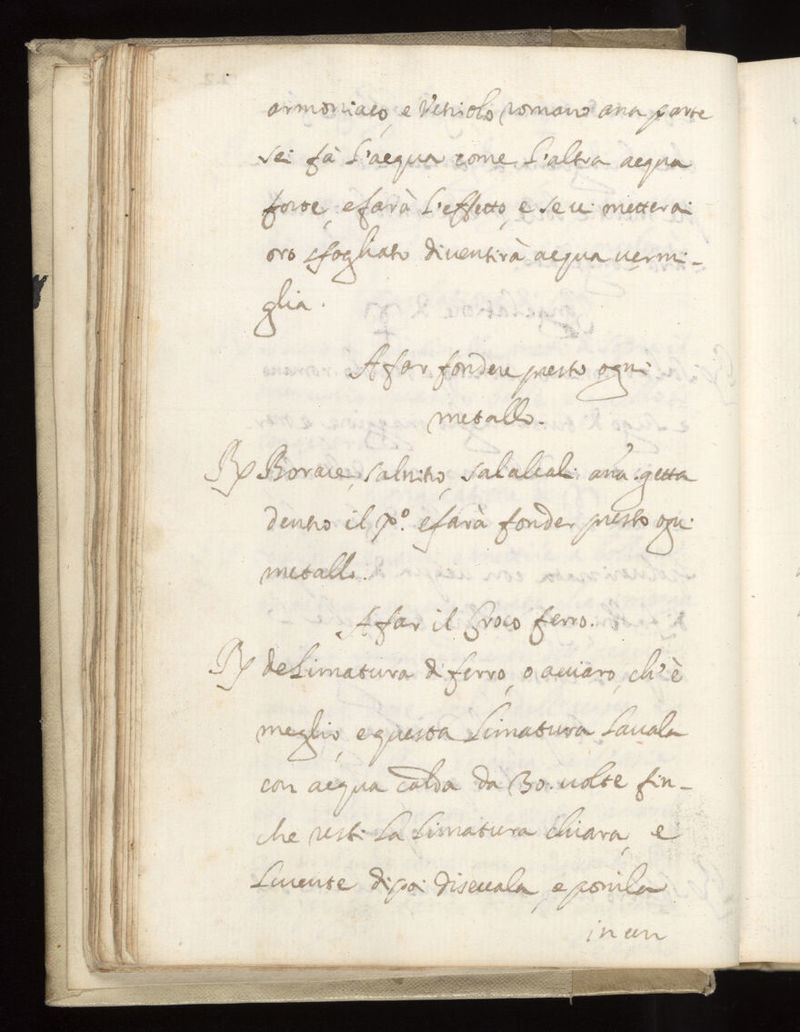 armoniaco, e Vitriolo romano ana parte
sei fà l'acqua come l'altra acqua
forte, e farà l'effetto, e se ui mettera
oro sfogliato diuentirà acqua uermi-
glia.
A far fondere presto ogni
metallo.
Rx Borace, salnitro, sal alcali ana getta
dentro il po. e farà fonder presto ogni
metallo.
A far il Croco ferro.
Rx de Limatura di ferro, o acciaro, ch'è
meglio, e questa Limatura Lauala
con acqua calda da 30. uolte fin-
che resti La Limatura chiara, e
Lucente dipoi diseccala, e ponila
in un